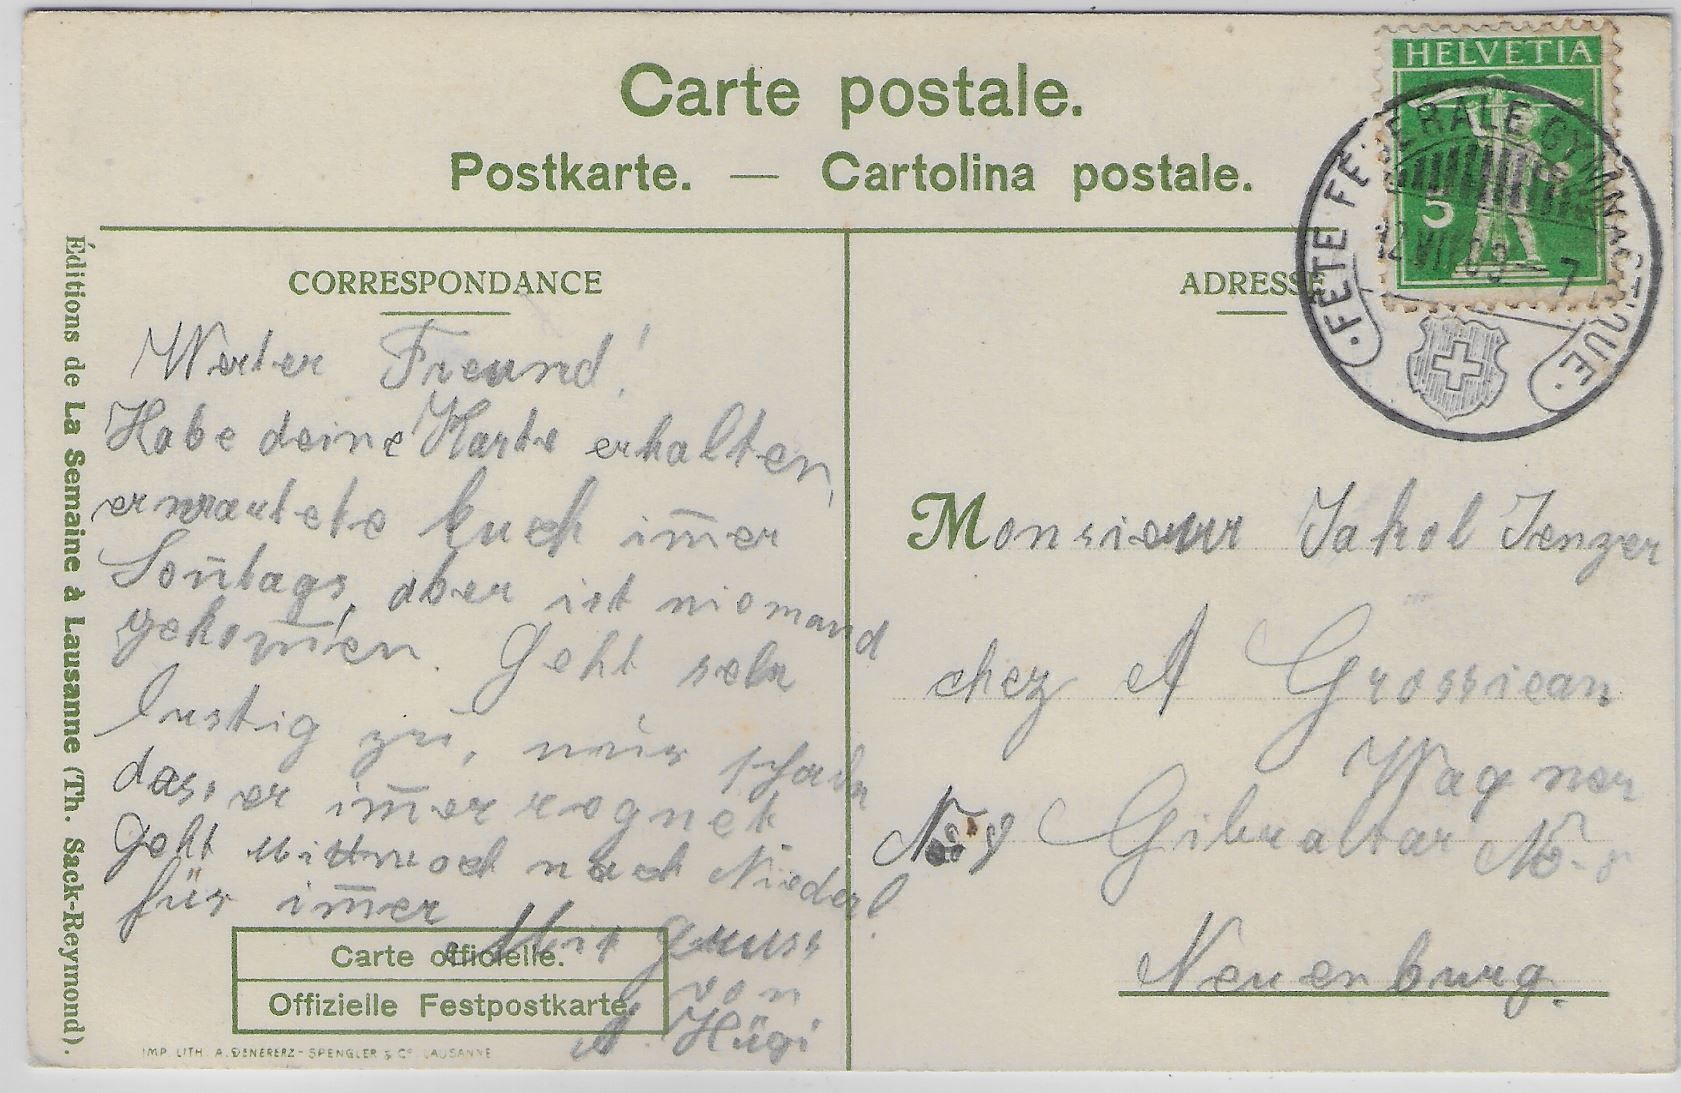 Carte postale.
Postkarte. — Cartolina postale.
HELVETIA
5
· FÊTE FÉDÉRALE GYMNASTIQUE ·
12 VII 09 — 7
Éditions de La Semaine à Lausanne (Th. Sack-Reymond).
CORRESPONDANCE
Werter Freund!
Habe deine Karte erhalten,
erwartete Euch im̄er
Son̄tags, aber ist niemand
gekom̄en. Geht sehr
lustig zu, nur schade
dass er im̄er regnet
Geht Mittwoch nach Niederl
für im̄er
Mit Gruss
von
A. Hügi
Carte officielle.
Offizielle Festpostkarte.
IMP. LITH. A. DENEREAZ-SPENGLER & Cº LAUSANNE
ADRESSE
Monsieur Jakob Jenzer
chez A Grossjean
Wagner
No 8 Gibraltar No 8
Neuenburg.